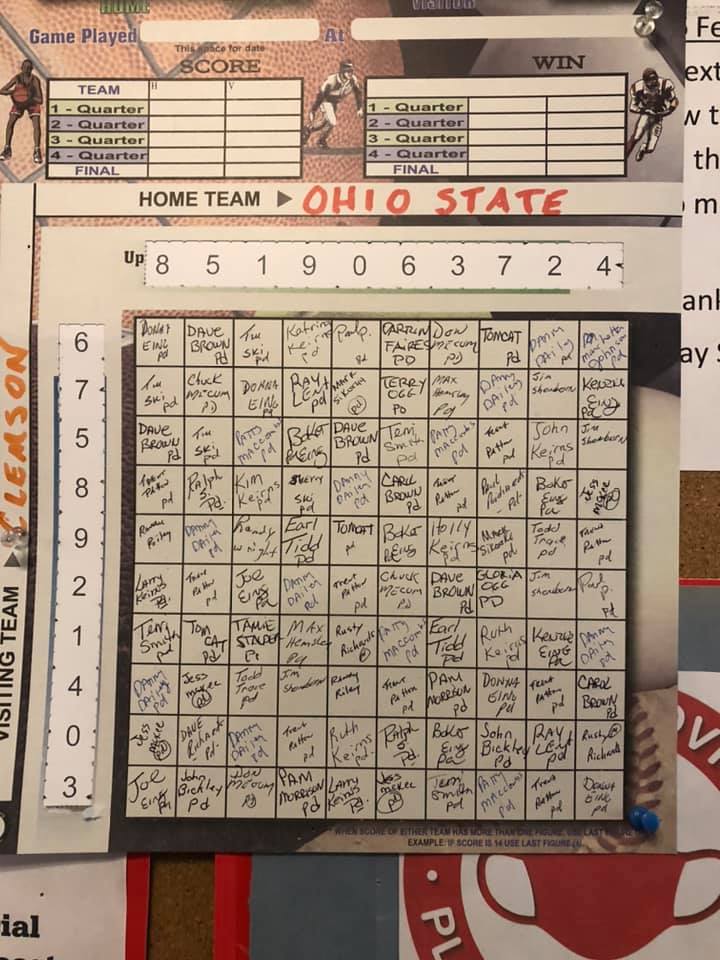 HOME
VISITOR
Game Played
At
This space for date
SCORE
WIN
TEAM H V
1 - Quarter 1 - Quarter
2 - Quarter 2 - Quarter
3 - Quarter 3 - Quarter
4 - Quarter 4 - Quarter
FINAL FINAL
HOME TEAM OHIO STATE
Up 8 5 1 9 0 6 3 7 2 4
VISITING TEAM CLEMSON
6 DONNA EING pd DAVE BROWN Pd Tim Ski pd Katrina Keirns pd Paul P. Pd CARRLIN FAIRES PD DON McCUM PD TOMCAT Pd DANNY DAILEY pd
7 Tim Ski pd Chuck McCUM PD DONNA EING Pd RAY LENT pd MARK SIKORA pd TERRY OGG PD MAX Hemsley Pd DANNY DAILEY pd Jim Shonborn KENZIE EING Pd
5 DAVE BROWN Pd Tim Ski pd PATTY MACCOMBS pd BAKER EING DAVE BROWN Pd Terri Smith pd PATTY MACCOMBS pd Trent Patton pd John Keirns Pd Jim Shonborn
8 Trent Patton pd Ralph S. Pd. Kim Keirns pd Sherry Ski pd DANNY DAILEY pd CARL BROWN Pd Trent Patton pd Paul pd BAKER EING Pd Jess McKee pd
9 Ronnie Riley DANNY DAILEY pd Randy Wright Earl Tidd Pd TOMCAT pd BAKER EING Holly Keirns MARK SIKORA pd Todd Trave pd Trent Patton pd
2 LARRY KEIRNS Pd. Trent Patton pd JOE EING Pd DANNY DAILEY pd Trent Patton pd CHUCK McCUM pd DAVE BROWN Pd GLORIA OGG PD Jim Shonborn Paul P. pd
1 Terri Smith pd TOM CAT Pd TAMIE Pd MAX Hemsley Pd Rusty Richards PATTY MACCOMBS pd Earl Tidd Pd Ruth Keirns pd KENZIE EING Pd DANNY DAILEY pd
4 DANNY DAILEY pd Jess McKee pd Todd Trave pd Jim Shonborn Ronnie Riley Trent Patton pd PAM MORRISON Pd DONNA EING Pd Trent Patton pd CAROL BROWN Pd
0 Jess McKee pd DAVE Richards Pd. DANNY DAILEY pd Trent Patton pd Ruth Keirns pd. Ralph S. Pd BAKER EING Pd John Bickley Pd RAY LENT pd Rusty Richards
3 JOE EING Pd John Bickley Pd DON McCUM PD PAM MORRISON Pd LARRY KEIRNS Pd. Jess McKee pd Terri Smith pd PATTY MACCOMBS pd Trent Patton pd DONNA EING pd
WHEN SCORE OF EITHER TEAM HAS MORE THAN ONE FIGURE, USE LAST
EXAMPLE: IF SCORE IS 14 USE LAST FIGURE (4)